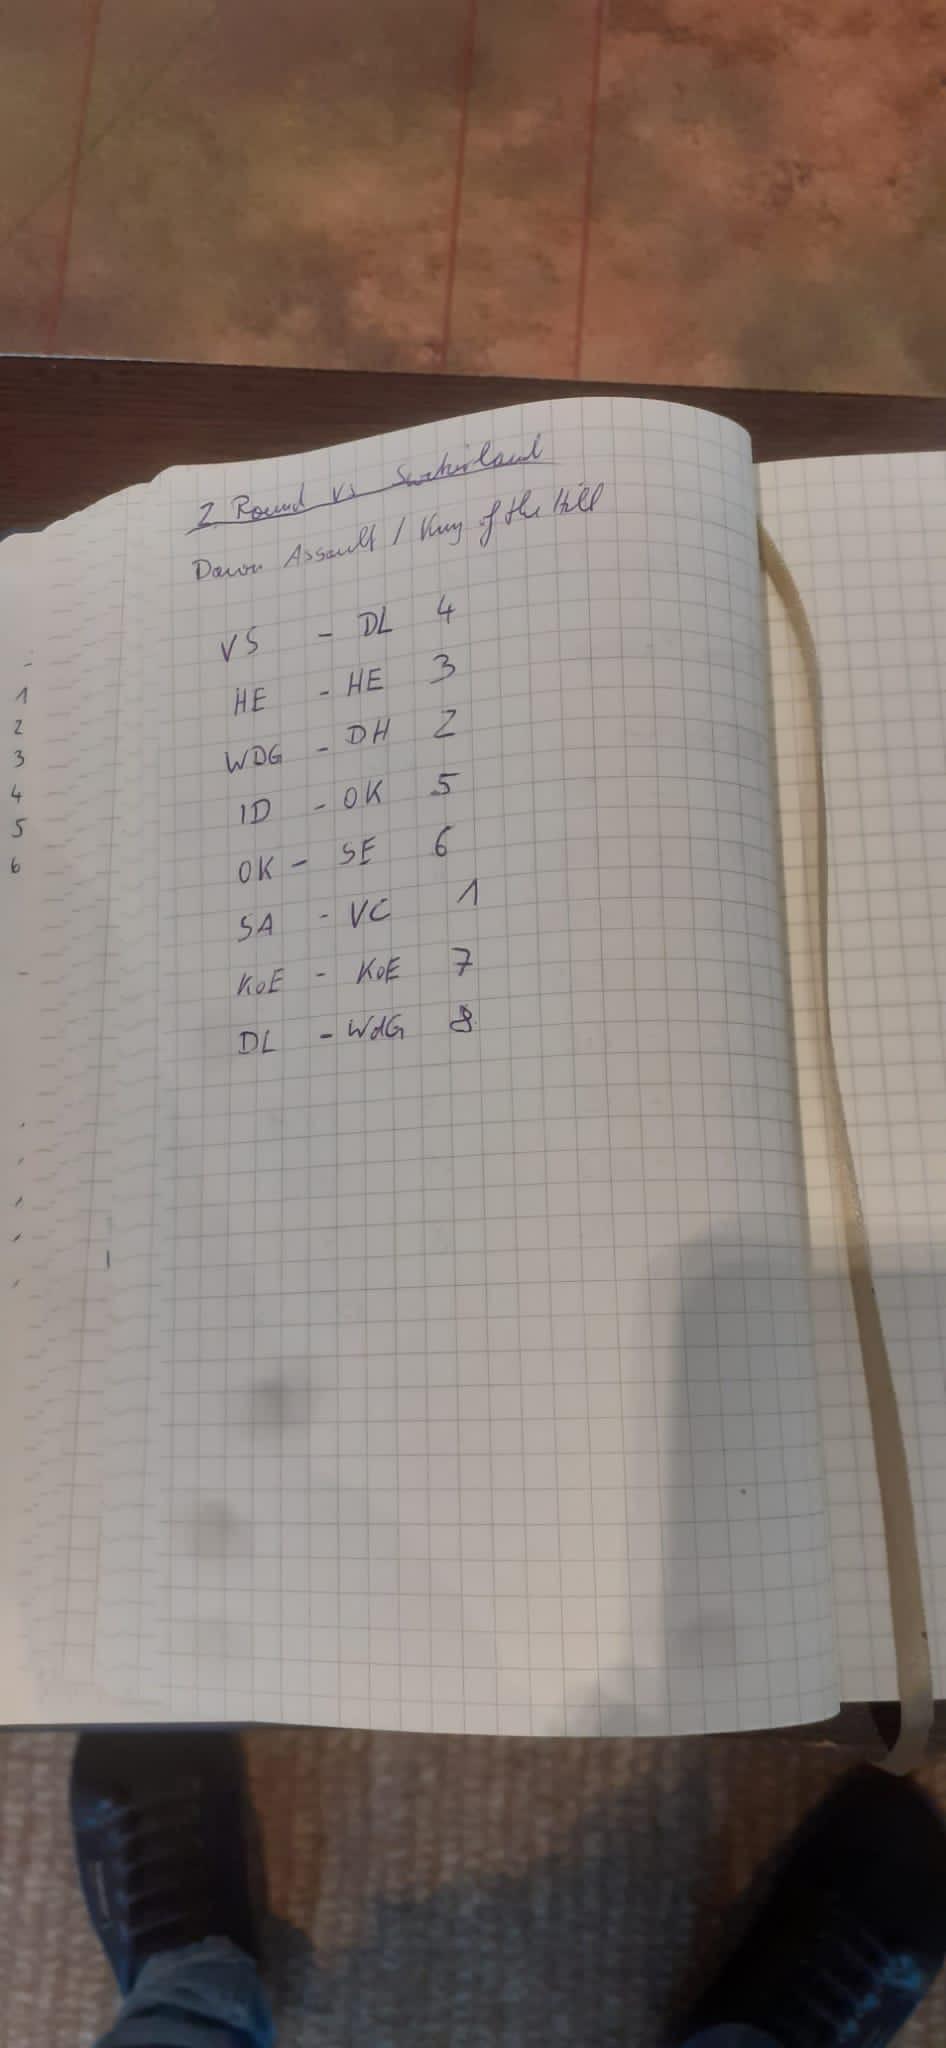 2 Round vs Switzerland
Dawn Assault / King of the Hill
VS - DL 4
HE - HE 3
WDG - DH 2
ID - OK 5
OK - SE 6
SA - VC 1
KoE - KoE 7
DL - WdG 8
1
2
3
4
5
6